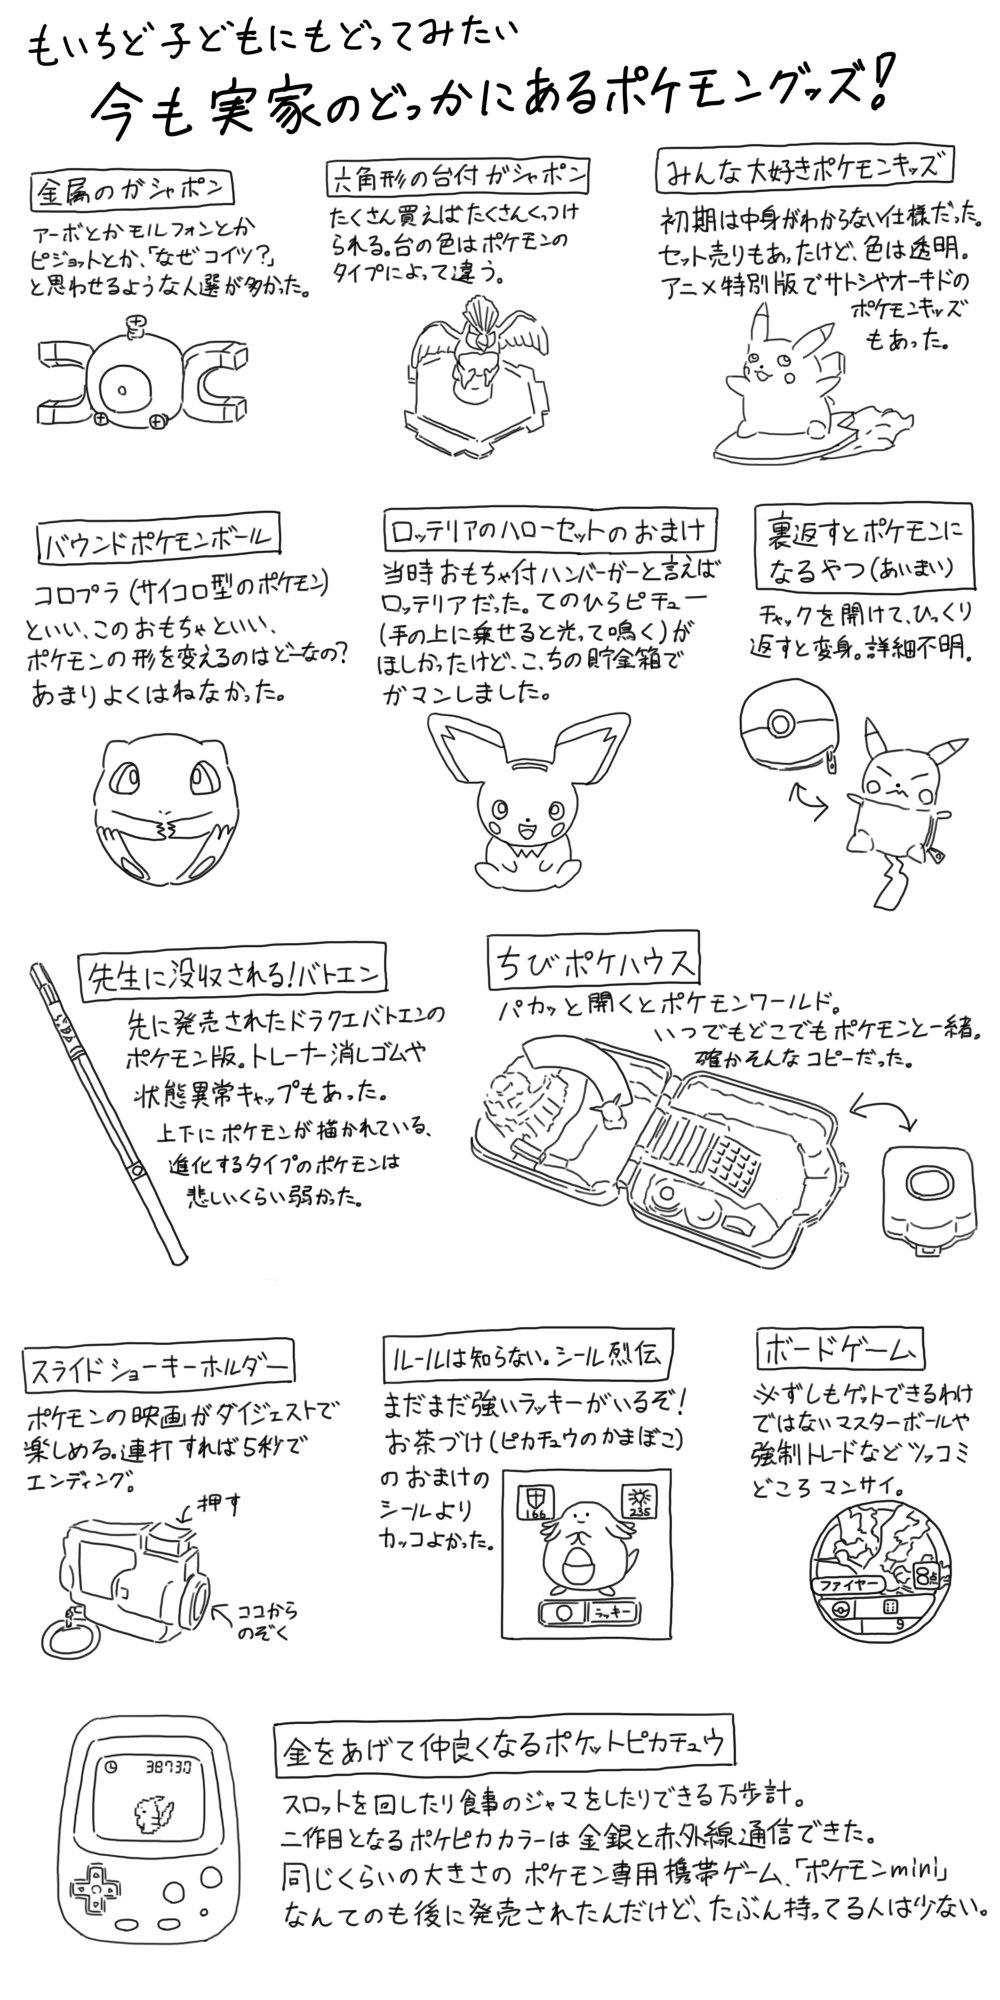 もいちど子どもにもどってみたい
今も実家のどっかにあるポケモングッズ!
金属のガシャポン
アーボとかモルフォンとか
ピジョットとか、「なぜコイツ?」
と思わせるような人選が多かった。
六角形の台付ガシャポン
たくさん買えばたくさんくっつけ
られる。台の色はポケモンの
タイプによって違う。
みんな大好きポケモンキッズ
初期は中身がわからない仕様だった。
セット売りもあったけど、色は透明。
アニメ特別版でサトシやオーキドの
ポケモンキッズ
もあった。
バウンドポケモンボール
コロプラ(サイコロ型のポケモン)
といい、このおもちゃといい、
ポケモンの形を変えるのはどーなの?
あまりよくはねなかった。
ロッテリアのハローセットのおまけ
当時おもちゃ付ハンバーガーと言えば
ロッテリアだった。てのひらピチュー
(手の上に乗せると光って鳴く)が
ほしかったけど、こっちの貯金箱で
ガマンしました。
裏返すとポケモンに
なるやつ(あいまい)
チャックを開けて、ひっくり
返すと変身。詳細不明.
先生に没収される!バトエン
先に発売されたドラクエバトエンの
ポケモン版。トレーナー消しゴムや
状態異常キャップもあった。
上下にポケモンが描かれている、
進化するタイプのポケモンは
悲しいくらい弱かった。
ちびポケハウス
パカッと開くとポケモンワールド。
いつでもどこでもポケモンと一緒。
確かそんなコピーだった。
スライドショーキーホルダー
ポケモンの映画がダイジェストで
楽しめる。連打すれば5秒で
エンディング。
押す
ココから
のぞく
ルールは知らない。シール烈伝
まだまだ強いラッキーがいるぞ!
お茶づけ(ピカチュウのかまぼこ)
のおまけの
シールより
カッコよかった。
166
235
ラッキー
ボードゲーム
※ずしもゲットできるわけ
ではないマスターボールや
強制トレードなどツッコミ
どころマンサイ。
ファイヤー
8点
9
38730
金をあげて仲良くなるポケットピカチュウ
スロットを回したり食事のジャマをしたりできる万歩計。
二作目となるポケピカカラーは金銀と赤外線通信できた。
同じくらいの大きさのポケモン専用携帯ゲーム、「ポケモンmini」
なんてのも後に発売されたんだけど、たぶん持ってる人は少ない。